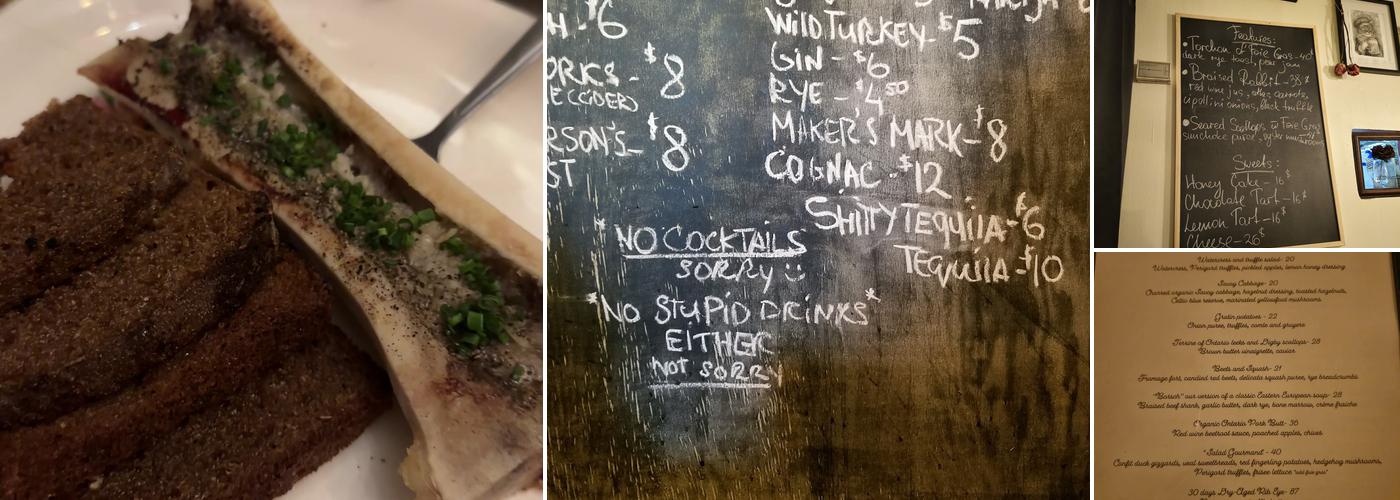 H-$6
ORKS- $8
(E CCiDER)
RSON'S- $8
ST
WiLD TURKEY-$5
GiN-$6
RYE-$4.50
MAKER'S MARK-$8
COGNAC-$12
SHiTTY TEQUiLA-$6
TEQUiLA-$10
*NO COCKTAiLS
SORRY
*NO STUPiD DRiNKS*
EiTHER
NOT SORRY
Features:
Torchon of Foie Gras-40$
dark rye toast, pear jam
Braised Rabbit-38$
red wine jus, carrots,
cipollini onions, black truffle
Seared Scallops w Foie Gras
sunchoke puree, oyster mushrooms
Sweets:
Honey Cake-16$
Chocolate Tart-16$
Lemon Tart-16$
Cheese-26$
Watercress and truffle salad- 20
Watercress, Perigord truffles, pickled apples, lemon honey dressing
Savoy Cabbage- 20
Charred organic Savoy cabbage, hazelnut dressing, toasted hazelnuts,
Celtic blue reserve, marinated yellowfoot mushrooms.
Gratin potatoes - 22
Onion puree, truffles, comte and gruyere
Terrine of Ontario leeks and Digby scallops- 28
Brown butter vinaigrette, caviar
Beets and Squash- 21
Fromage fort, candied red beets, delicata squash puree, rye breadcrumbs
"Borsch" our version of a classic Eastern European soup- 28
Braised beef shank, garlic butter, dark rye, bone marrow, crème fraiche
Organic Ontario Pork Butt- 36
Red wine beetroot sauce, poached apples, chives
"Salad Gourmand" - 40
Confit duck gizzards, veal sweetbreads, red fingerling potatoes, hedgehog mushrooms,
Perigord truffles, frisee lettuce "add foie gras"
30 days Dry-Aged Rib Eye- 87